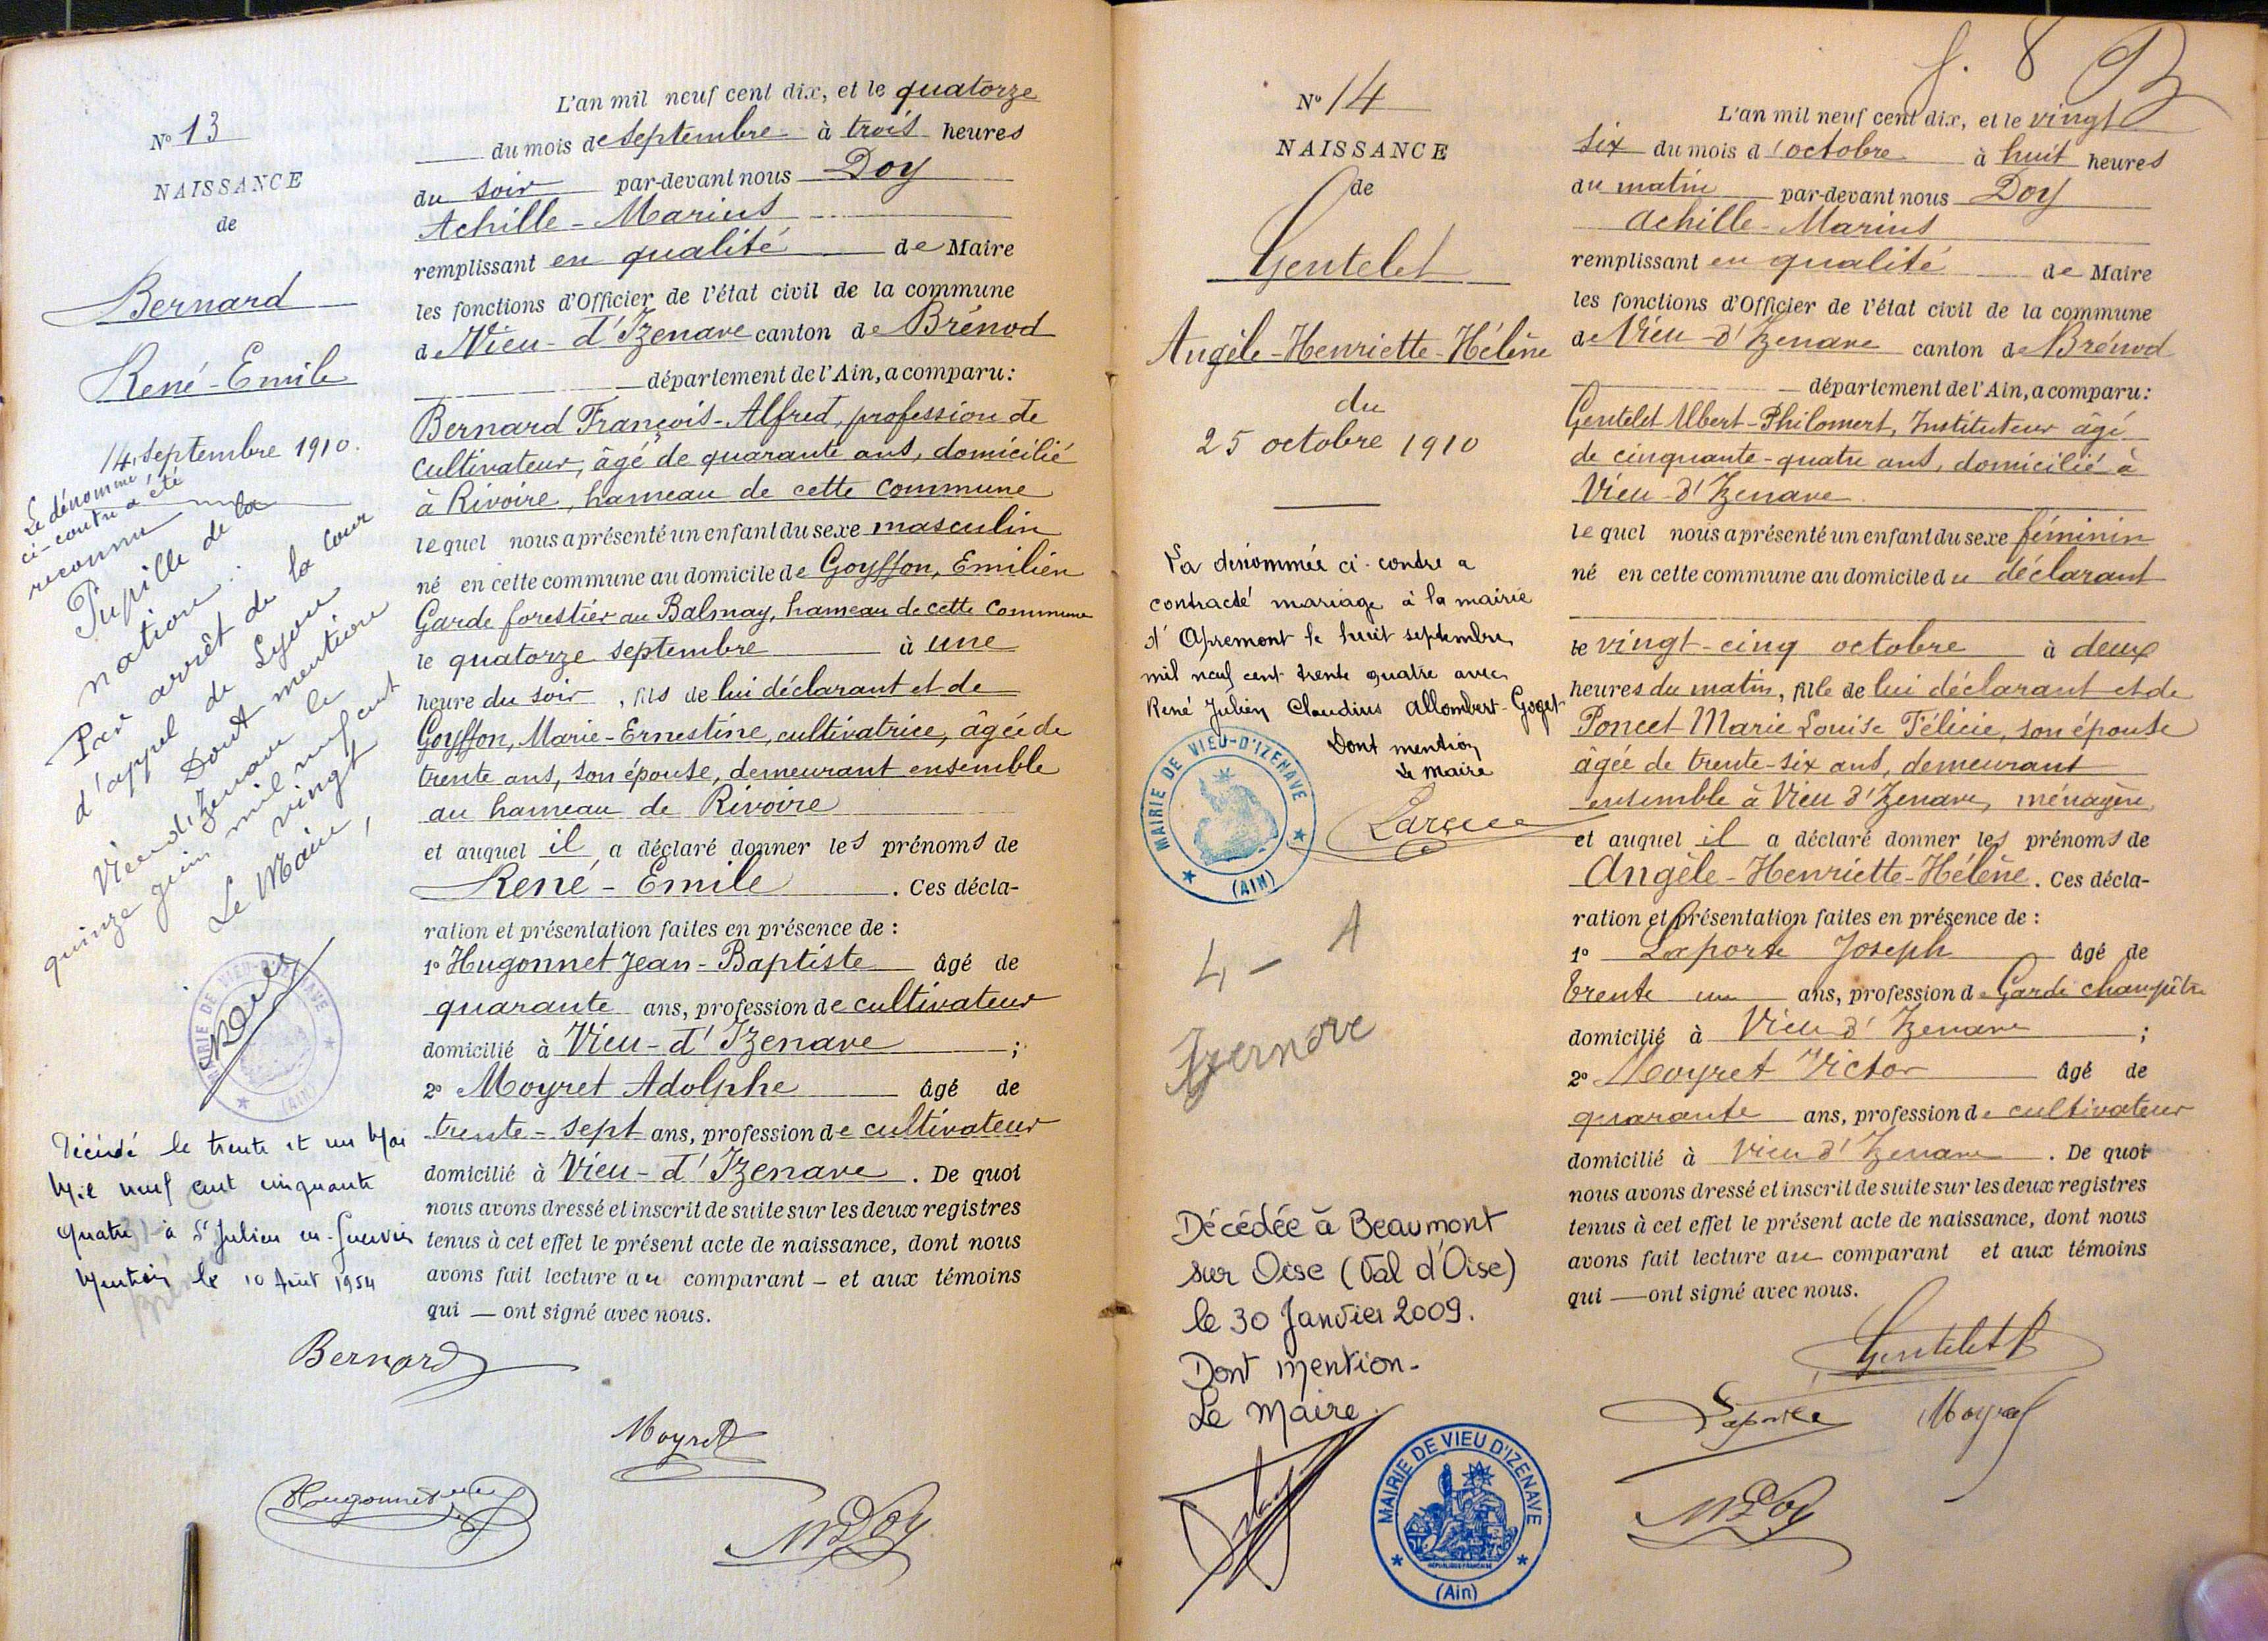 N° 13
NAISSANCE
de
Bernard
René-Emile
14 septembre 1910.
Le dénommé
ci-contre a été
reconnu
Pupille de la
nation.
Par arrêt de la Cour
d'appel de Lyon
Dont mention
Vieu d'Izenave le
quinze juin mil neuf cent
vingt
Le Maire,
Doy
MAIRIE DE VIEU-D'IZENAVE
(AIN)
Décédé le trente et un Mai
Mil neuf cent cinquante
quatre à St Julien en-Genevois
Mention le 10 Août 1954
L'an mil neuf cent dix, et le quatorze
du mois de septembre à trois heures
du soir par-devant nous Doy
Achille-Marius
remplissant en qualité de Maire
les fonctions d'Officier de l'état civil de la commune
de Vieu-d'Izenave canton de Brénod
département de l'Ain, a comparu:
Bernard François-Alfred, profession de
cultivateur, âgé de quarante ans, domicilié
à Rivoire, hameau de cette commune
lequel nous a présenté un enfant du sexe masculin
né en cette commune au domicile de Goyffon, Emilien
Garde forestier au Balmay, hameau de cette commune
le quatorze septembre à une
heure du soir, fils de lui déclarant et de
Goyffon, Marie-Ernestine, cultivatrice, âgée de
trente ans, son épouse, demeurant ensemble
au hameau de Rivoire
et auquel il a déclaré donner les prénoms de
René-Emile. Ces décla-
ration et présentation faites en présence de :
1° Hugonnet Jean-Baptiste âgé de
quarante ans, profession de cultivateur
domicilié à Vieu-d'Izenave ;
2° Moyret Adolphe âgé de
trente-sept ans, profession de cultivateur
domicilié à Vieu-d'Izenave. De quoi
nous avons dressé et inscrit de suite sur les deux registres
tenus à cet effet le présent acte de naissance, dont nous
avons fait lecture au comparant - et aux témoins
qui — ont signé avec nous.
Bernard
Moyret
Hugonnet
M Doy
f. 8
N° 14
NAISSANCE
de
Gentelet
Angèle-Henriette-Hélène
du
25 octobre 1910
La dénommée ci-contre a
contracté mariage à la mairie
d'Apremont le huit septembre
mil neuf cent trente quatre avec
René Julien Claudius Allombert-Goget
Dont mention
Le Maire
MAIRIE DE VIEU-D'IZENAVE
(AIN)
4 - 1
Izernore
Décédée à Beaumont
sur Oise (Val d'Oise)
le 30 Janvier 2009.
Dont mention-
Le Maire.
MAIRIE DE VIEU D'IZENAVE
RÉPUBLIQUE FRANÇAISE
(Ain)
L'an mil neuf cent dix, et le vingt
six du mois d'octobre à huit heures
du matin par-devant nous Doy
Achille-Marius
remplissant en qualité de Maire
les fonctions d'Officier de l'état civil de la commune
de Vieu-d'Izenave canton de Brénod
département de l'Ain, a comparu:
Gentelet Albert-Philomert, Instituteur âgé
de cinquante-quatre ans, domicilié à
Vieu-d'Izenave
lequel nous a présenté un enfant du sexe féminin
né en cette commune au domicile du déclarant
le vingt-cinq octobre à deux
heures du matin, fille de lui déclarant et de
Poncet Marie Louise Félicie, son épouse
âgée de trente-six ans, demeurant
ensemble à Vieu d'Izenave, ménagère
et auquel il a déclaré donner les prénoms de
Angèle-Henriette-Hélène. Ces décla-
ration et présentation faites en présence de :
1° Laporte Joseph âgé de
trente un ans, profession de Garde champêtre
domicilié à Vieu d'Izenave ;
2° Moyret Victor âgé de
quarante ans, profession de cultivateur
domicilié à Vieu d'Izenave. De quoi
nous avons dressé et inscrit de suite sur les deux registres
tenus à cet effet le présent acte de naissance, dont nous
avons fait lecture au comparant et aux témoins
qui — ont signé avec nous.
Gentelet A
Laporte
Moyret
M Doy